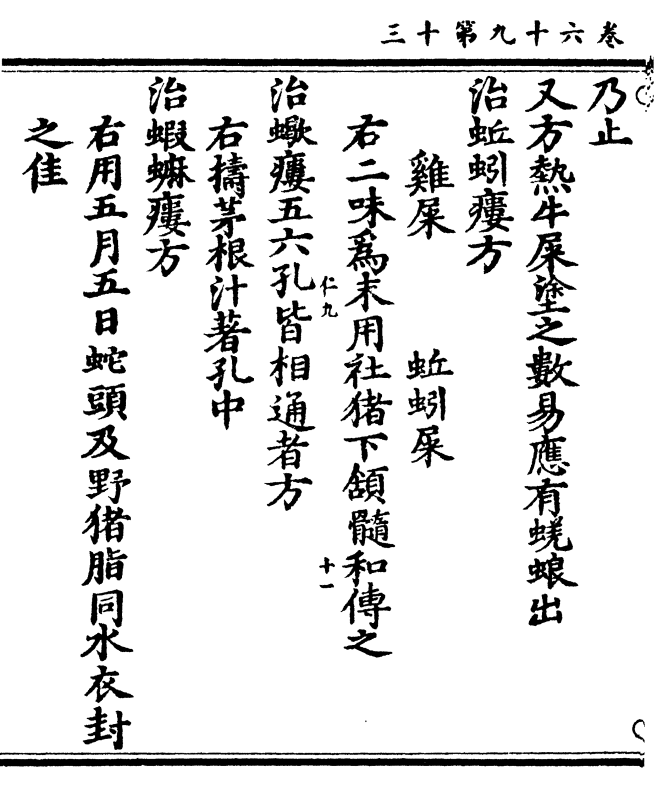 卷六十九第十三
乃止
又方熱牛屎塗之數易應有蜣蜋出
治蚯蚓瘻方
雞屎 蚯蚓屎
右二味爲末用社猪下頷髓和傅之
仁九
十一
治蠍瘻五六孔皆相通者方
右擣茅根汁著孔中
治蝦蟆瘻方
右用五月五日蛇頭及野猪脂同水衣封
之佳